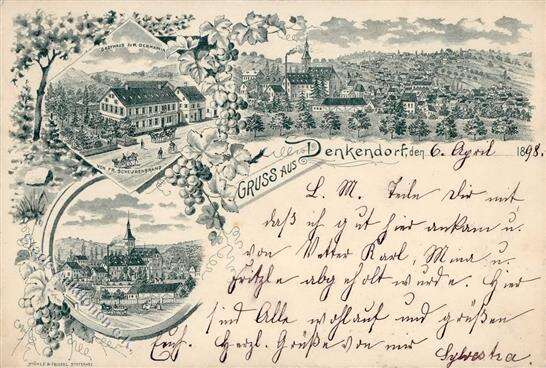 GASTHAUS ZUR GERMANIA
FR. SCHEUFENBRAND
GRUSS AUS Denkendorf, den 6. April 1898.
L. M. Teile Dir mit,
daß ich gut hier ankam u.
von Vetter Karl, Mina u.
Fritzle abgeholt wurde. Hier
sind Alle wohlauf und grüßen
Euch. Herzl. Grüße von mir
Sylvestra